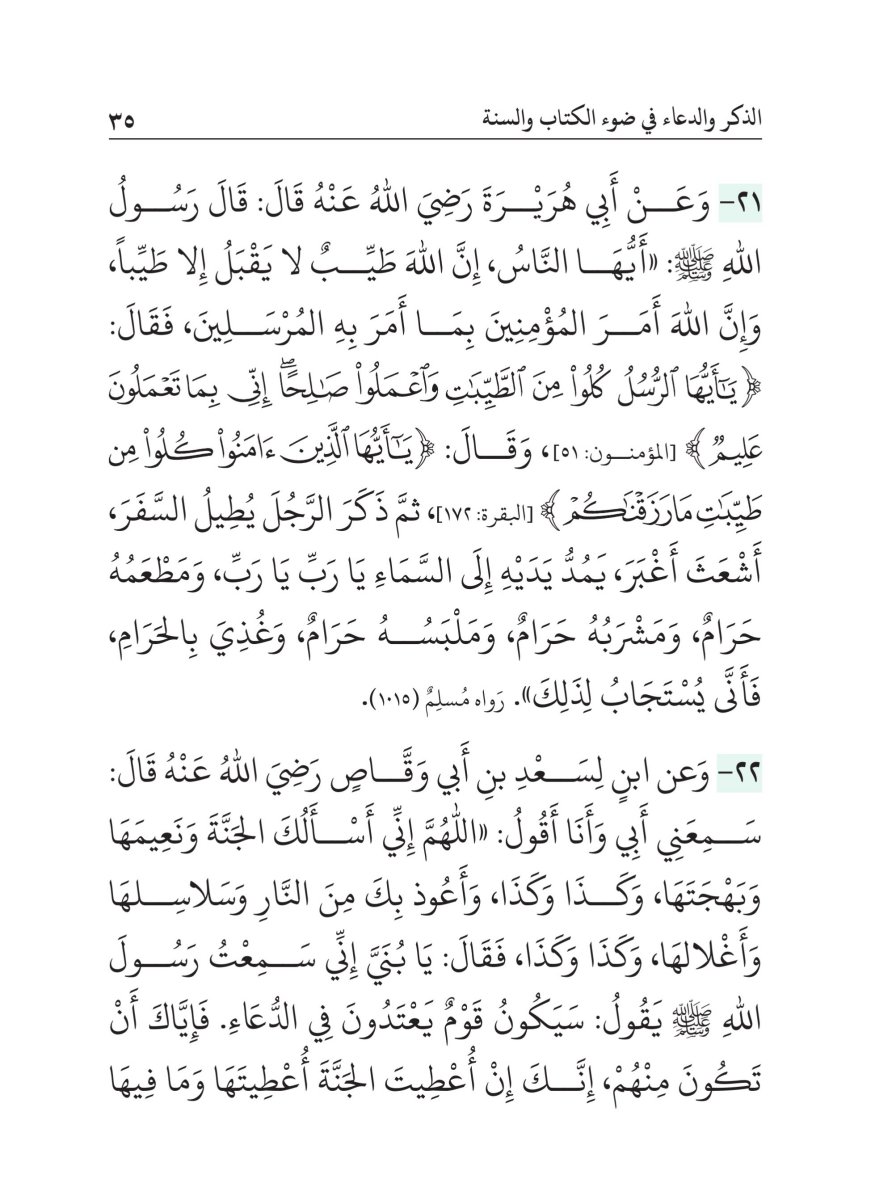 الذكر والدعاء في ضوء الكتاب والسنة ٣٥
٢١- وَعَـــنْ أَبِي هُرَيْـــرَةَ رَضِيَ اللهُ عَنْهُ قَالَ: قَالَ رَسُـــولُ
اللهِ ﷺ: «أَيُّهَـــا النَّاسُ، إِنَّ اللهَ طَيِّـــبٌ لا يَقْبَلُ إِلا طَيِّباً،
وَإِنَّ اللهَ أَمَـــرَ المُؤْمِنِينَ بِمَـــا أَمَرَ بِهِ المُرْسَـــلِينَ، فَقَالَ:
﴿يَٰٓأَيُّهَا ٱلرُّسُلُ كُلُوا۟ مِنَ ٱلطَّيِّبَٰتِ وَٱعْمَلُوا۟ صَٰلِحًا ۖ إِنِّى بِمَا تَعْمَلُونَ
عَلِيمٌ﴾ [المؤمنـــون: ٥١]، وَقَـــالَ: ﴿يَٰٓأَيُّهَا ٱلَّذِينَ ءَامَنُوا۟ كُلُوا۟ مِن
طَيِّبَٰتِ مَا رَزَقْنَٰكُمْ﴾ [البقرة: ١٧٢]، ثمَّ ذَكَرَ الرَّجُلَ يُطِيلُ السَّفَرَ،
أَشْعَثَ أَغْبَرَ، يَمُدُّ يَدَيْهِ إِلَى السَّمَاءِ يَا رَبِّ يَا رَبِّ، وَمَطْعَمُهُ
حَرَامٌ، وَمَشْرَبُهُ حَرَامٌ، وَمَلْبَسُـــهُ حَرَامٌ، وَغُذِيَ بِالحَرَامِ،
فَأَنَّى يُسْتَجَابُ لِذَلِكَ». رَواه مُسلِمٌ (١٠١٥).
٢٢- وَعن ابنٍ لِسَـــعْدِ بنِ أَبي وَقَّـــاصٍ رَضِيَ اللهُ عَنْهُ قَالَ:
سَـــمِعَنِي أَبي وَأَنَا أَقُولُ: «اللَّهُمَّ إِنِّي أَسْـــأَلُكَ الجَنَّةَ وَنَعِيمَهَا
وَبَهْجَتَهَا، وَكَـــذَا وَكَذَا، وَأَعُوذ بِكَ مِنَ النَّارِ وَسَلاسِـــلهَا
وَأَغْلالهَا، وَكَذَا وَكَذَا، فَقَالَ: يَا بُنَيَّ إِنِّي سَـــمِعْتُ رَسُـــولَ
اللهِ ﷺ يَقُولُ: سَيَكُونُ قَوْمٌ يَعْتَدُونَ فِي الدُّعَاءِ. فَإِيَّاكَ أَنْ
تَكُونَ مِنْهُمْ، إِنَّـــكَ إِنْ أُعْطِيتَ الجَنَّةَ أُعْطِيتَهَا وَمَا فِيهَا